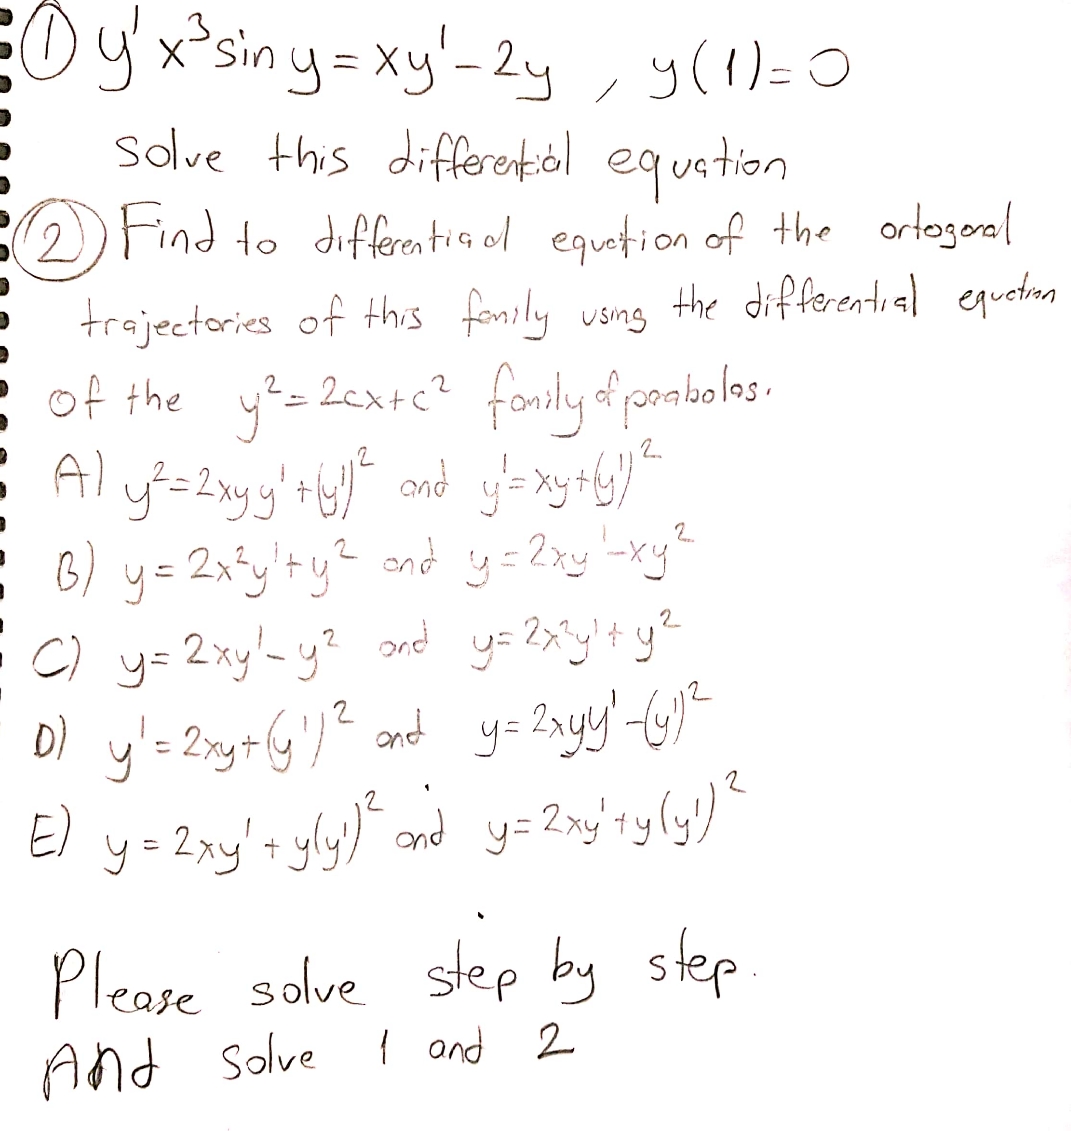 ① y' x³ sin y = xy' - 2y , y(1) = 0
solve this differential equation
② Find to differential equation of the ortogonal
trajectories of this family using the differential equation
of the y² = 2cx + c² family of parabolas.
A) y² = 2xyy' + (y')² and y' = xy + (y')²
B) y = 2x²y' + y² and y = 2xy' - xy²
C) y = 2xy' - y² and y = 2x²y' + y²
D) y' = 2xy + (y')² and y = 2xyy' - (y')²
E) y = 2xy' + y(y')² and y = 2xy' + y(y')²
Please solve step by step.
And solve 1 and 2